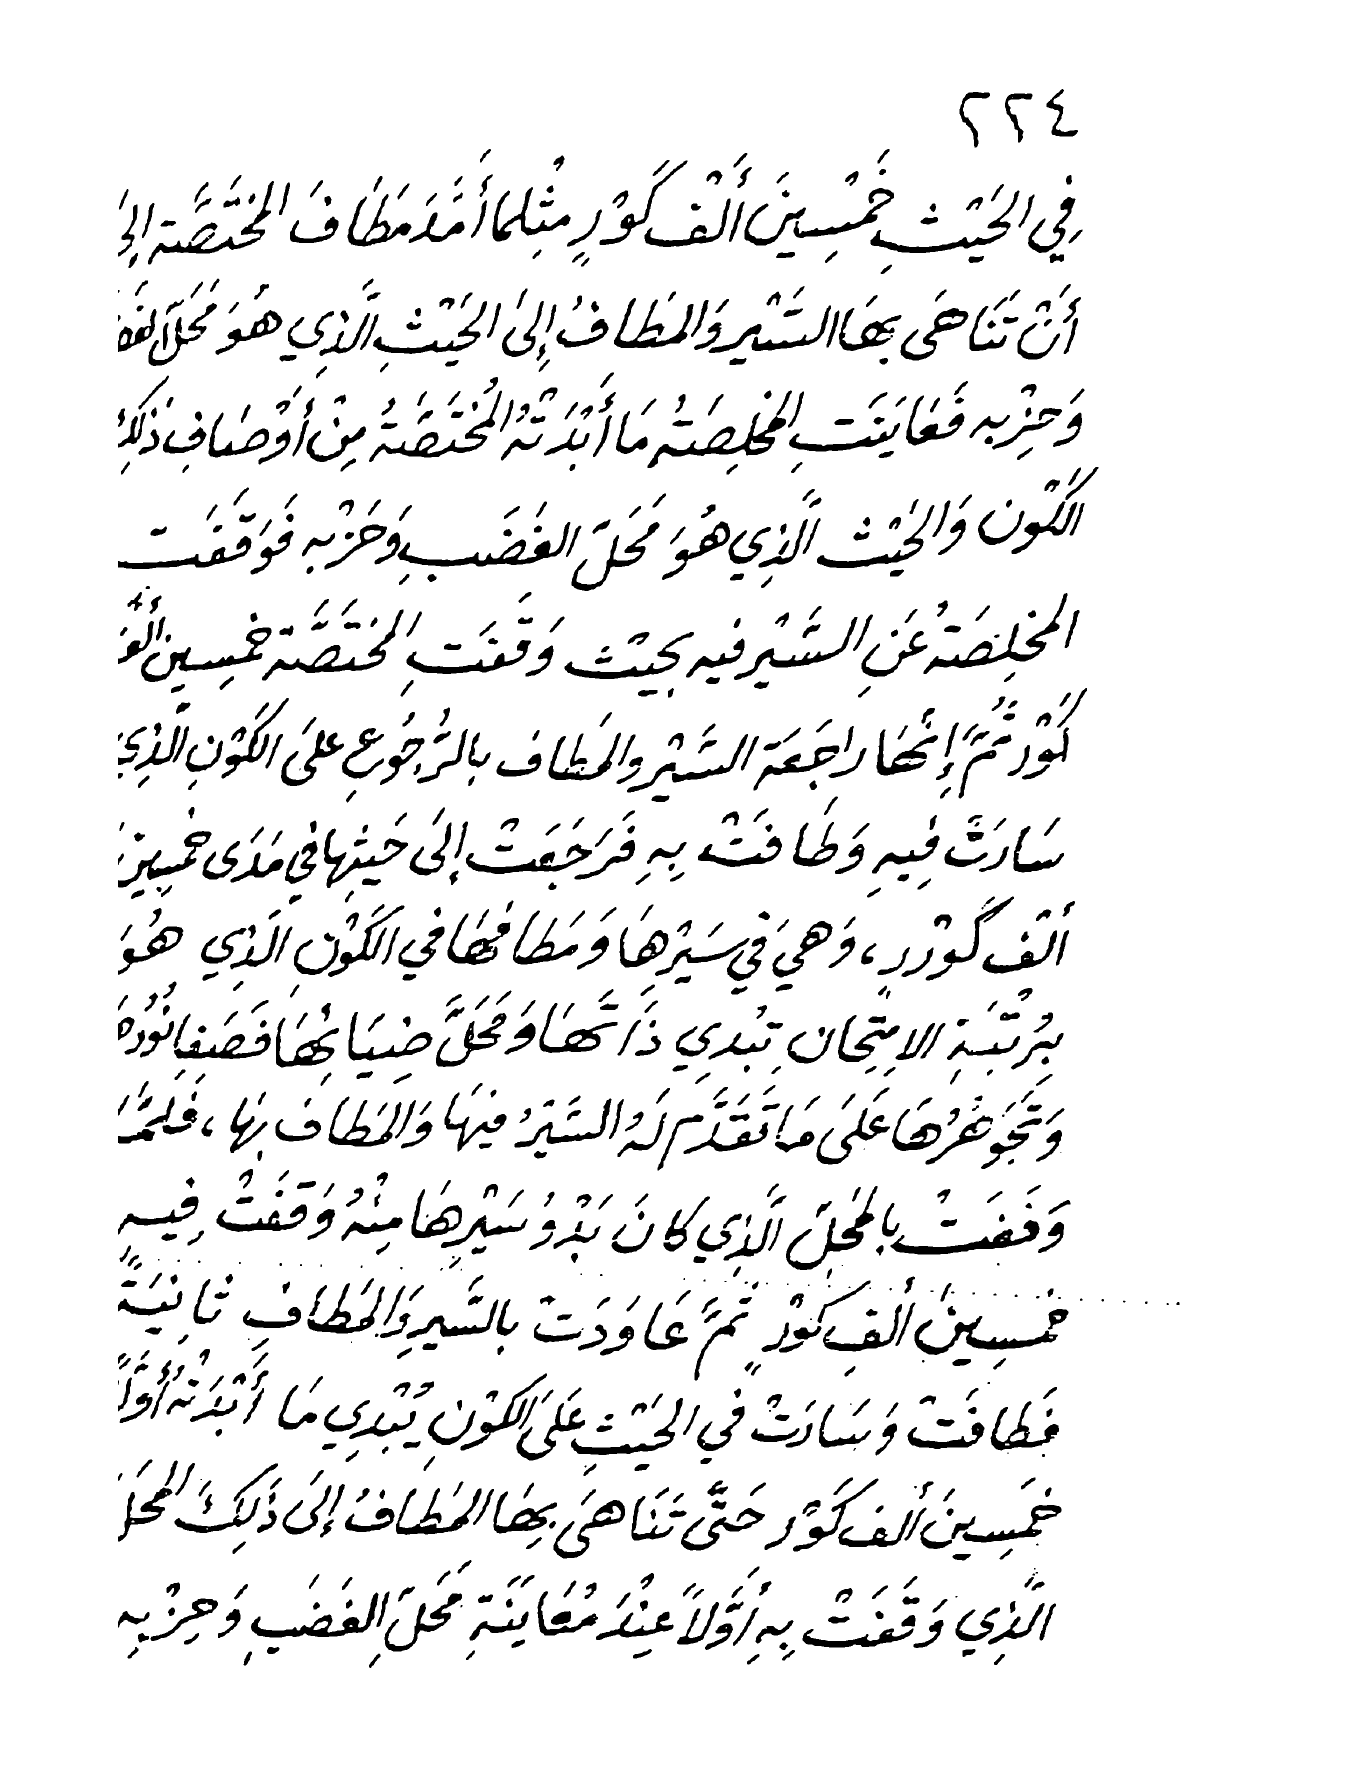 ٢٢٤
فِي الحَيْثِ خَمْسِينَ أَلْفَ كَوْرٍ مِثْلِمَا أَمَّدَ مَطَافَ المُخْتَصَّة إِلَى
أَنْ تَنَاهَى بِهَا السَّيْر وَالمَطَافُ إِلىَ الحَيْثِ الَّذِي هُوَ مَحَلّ
وَحِزْبِه فَعَايَنَتِ المُخْلِصَتُه مَا أَبْدَتْهُ المُخْتَصَّتُه مِنْ أَوْصَافِ ذَلِكَ
الكَوْن وَالحَيْث الَّذِي هُوَ مَحَلّ الغَضَبِ وَحَزْبِه فَوَقَفَت
المُخلِصَتهُ عَنِ السَّيْر فيه بحَيْث وَقَفَتِ المُخَتَصَّة خَمْسِين أَلْفَ
كَوْر ثُمَّ إِنَّهَا راجَعَة السَّيْر والمَطاف بالرُّجُوعِ علىَ الكَوْنِ الَّذِي
سَارَتْ فِيهِ وَطَافَتْ بِهِ فَرَجَعَتْ إِلىَ حَيْثِهَا فِي مَدَى خَمْسِينَ
أَلْف كَوْرٍ، وَهيَ في سَيْرِهَا وَمَطَافهَا في الكَوْنِ الَّذِي هُوَ
بِرُتْبَةِ الامِتِحَانِ تُبْدِي ذَاتَهَا وَمَحَلَّ ضِيَائِهَا فَصَفا نُورُهَ
وَتَجَوهَرُهَا عَلىَ مَا تَقَدَّم لَهُ السَّيْرُ فيهَا وَالمَطَاف بِهَا، فَلَمَّا
وَقَفَتْ بالمحَلّ الَّذِي كانَ بَدْوُ سَيْرِهَا مِنْهُ وَقَفَتْ فِيه
خمسِينَ أَلفِ كَوْرٍ ثُمَّ عَاوَدَتْ بالسَّيرِ وَالمَطَافِ ثانِيَةً
فَطافَتْ وَسَارَتْ في الحَيْثِ عَلىَ الكَوْنِ يُبْدِي مَا أَبْدَتْهُ أَوَّلاً
خَمْسِينَ أَلف كَوْر حَتَّى تَنَاهىَ بِهَا المَطَافُ إِلىَ ذَلِكَ المَحَلّ
الَّذِي وَقَفَتْ بِهِ أَوَّلاً عِنْدَ مُعَايَنَةِ مَحَلّ الغَضَبِ وَحِزْبِه